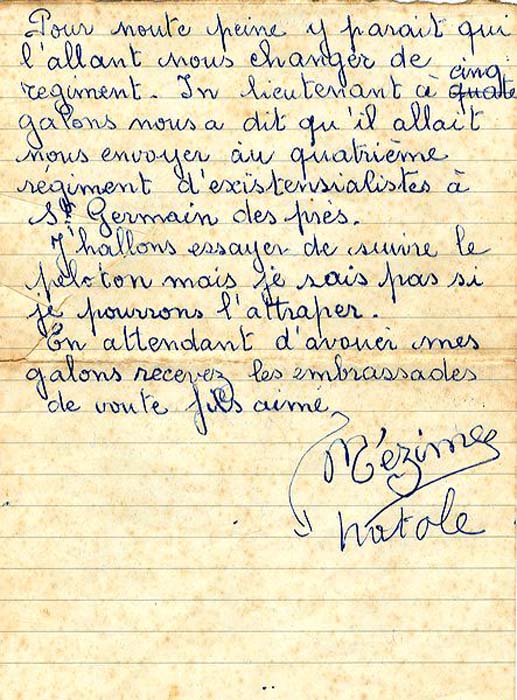 Pour noute peine y parait qui
l'allant nous changer de
regiment. In lieutenant à cinq quate
galons nous a dit qu'il allait
nous envoyer au quatrième
régiment d'existensialistes à
St Germain des prés.
J'hallons essayer de suivre le
peloton mais je sais pas si
je pourrons l'attraper.
En attendant d'avouer mes
galons recevez les embrassades
de voute fils aimé,
Mézimee
natole